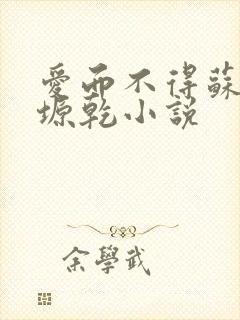 愛而不得蘇
塬乾小說
余學武